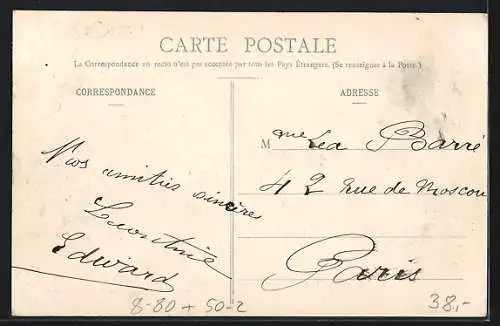 CARTE POSTALE
La Correspondance au recto n'est pas acceptée par tous les Pays Étrangers. (Se renseigner à la Poste.)
CORRESPONDANCE
ADRESSE
Mme Léa Barré
42 Rue de Moscou
Paris
Nos amitiés sincères
Léontine
Edward
8-80 + 50-2
38,-